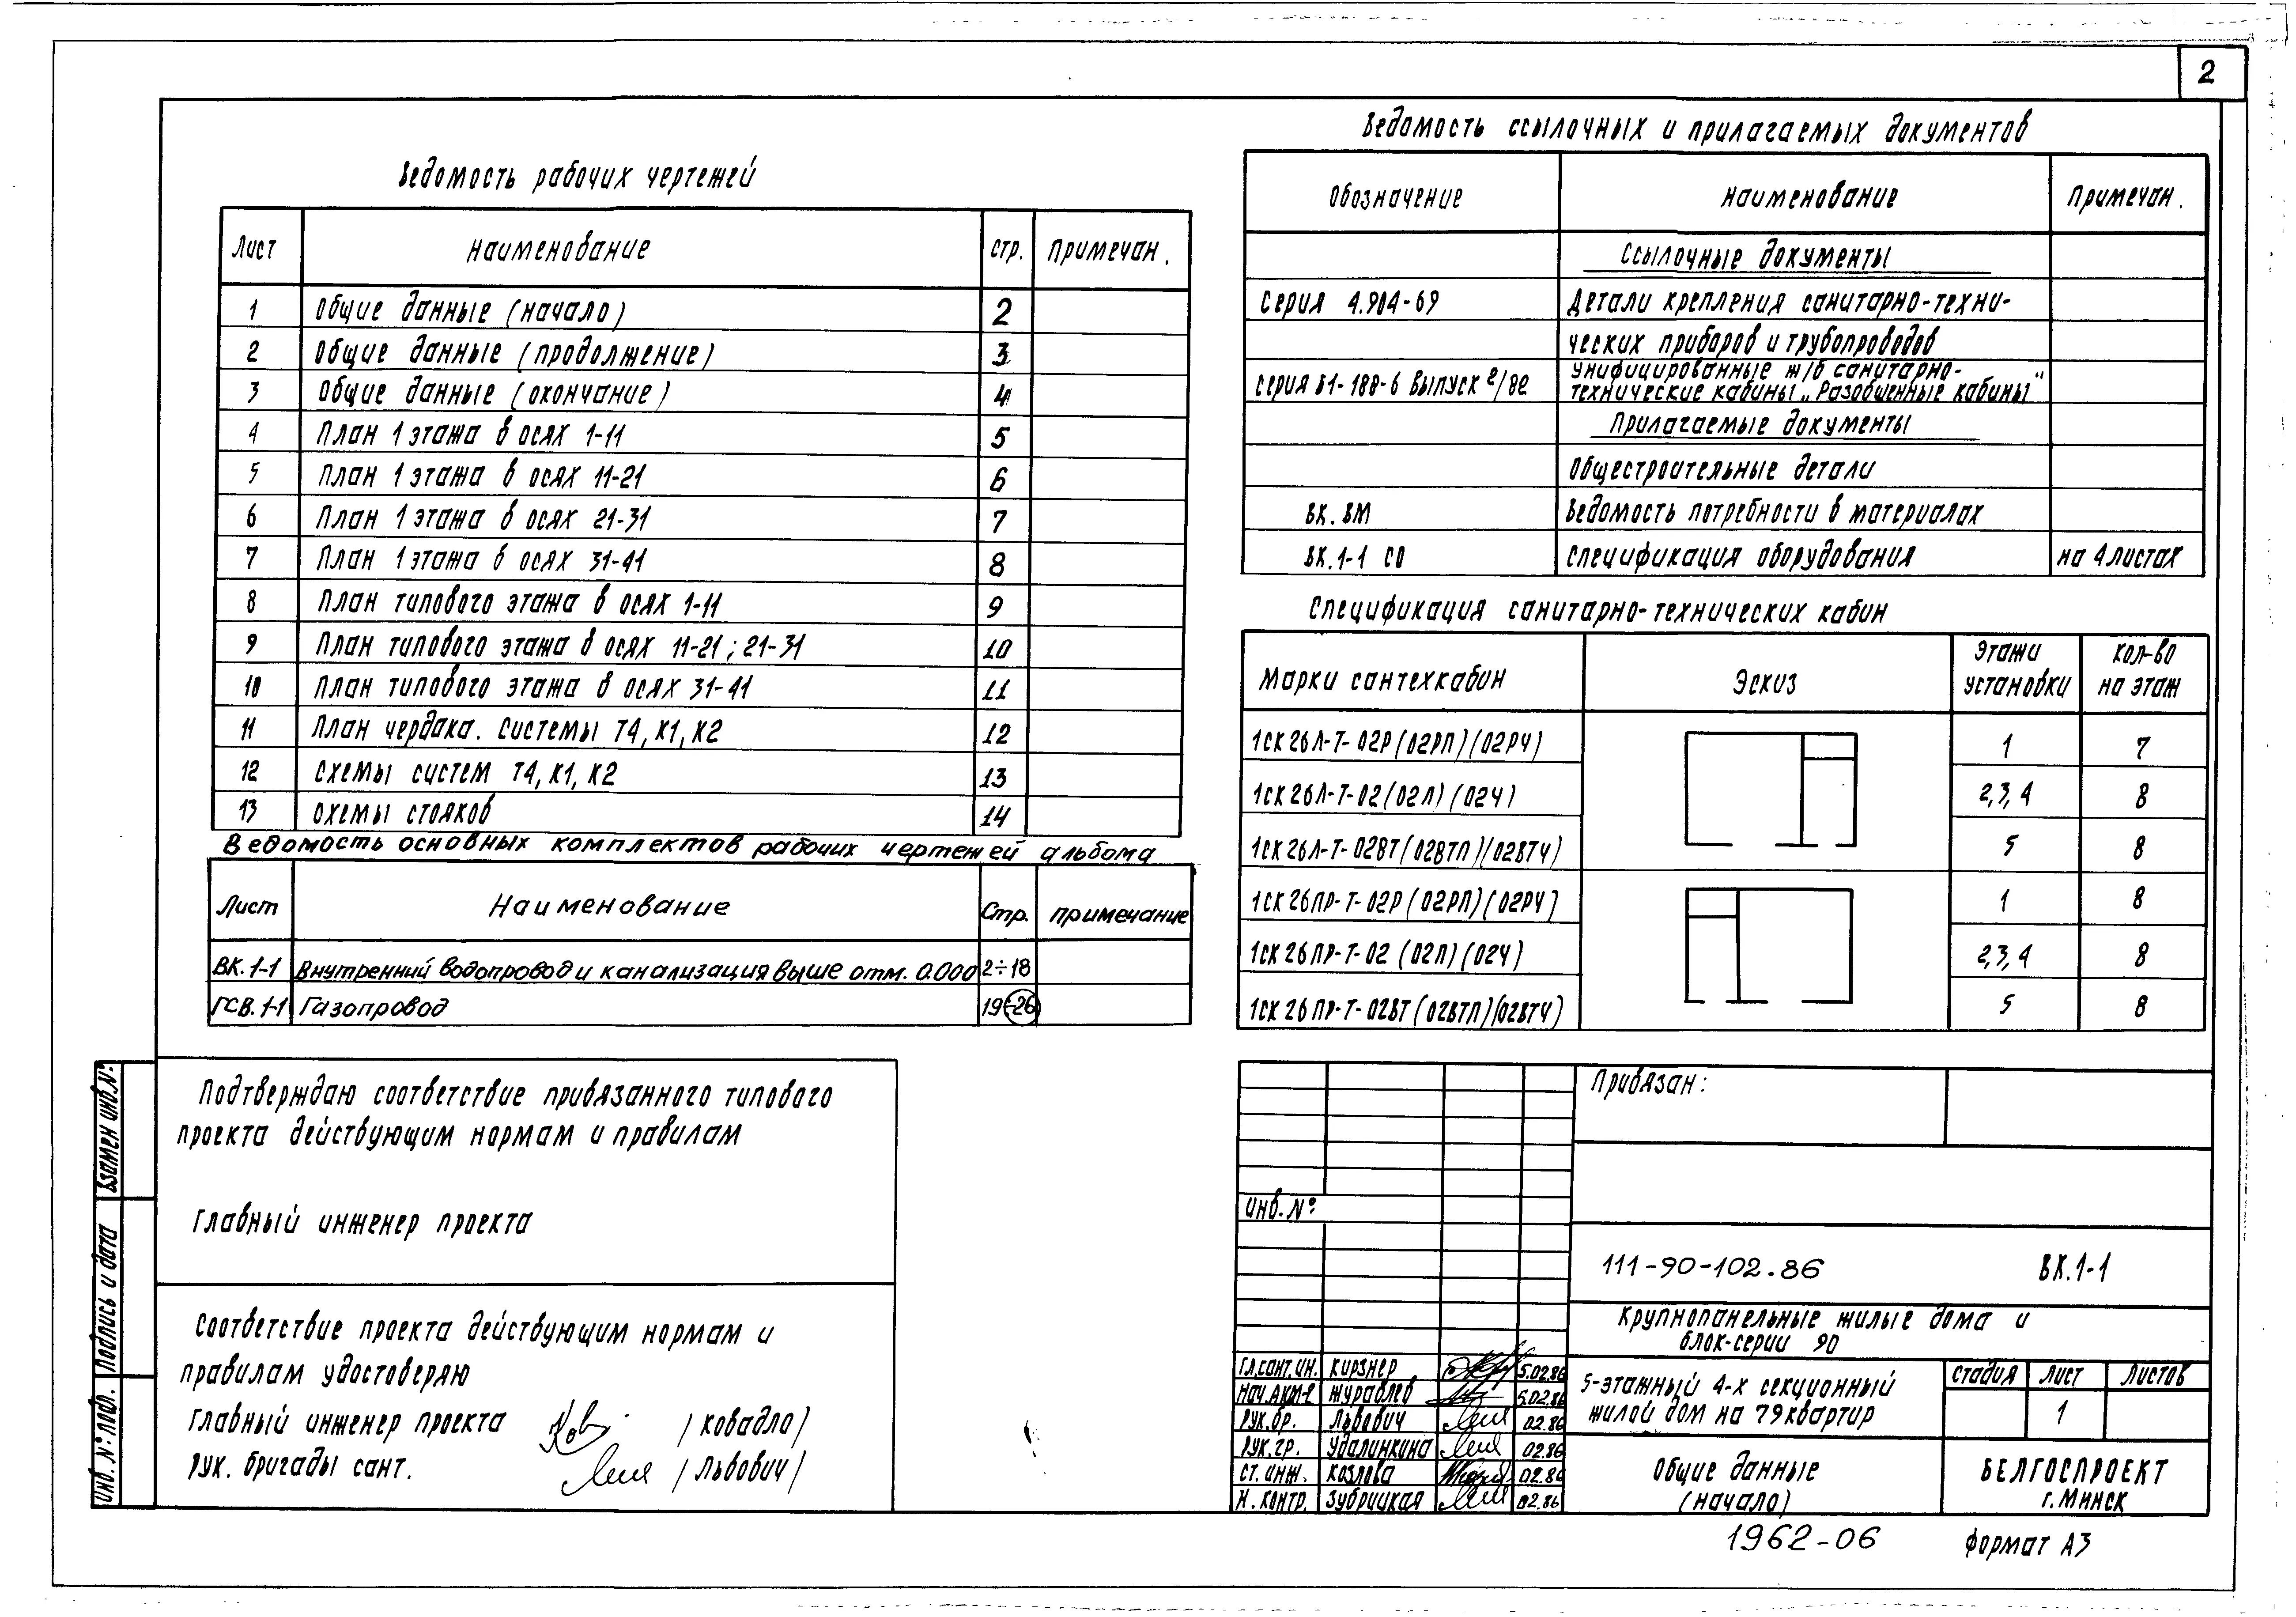 2
Ведомость рабочих чертежей
Лист Наименование стр. Примечан.
1 Общие данные (начало) 2
2 Общие данные (продолжение) 3
3 Общие данные (окончание) 4
4 План 1 этажа в осях 1-11 5
5 План 1 этажа в осях 11-21 6
6 План 1 этажа в осях 21-31 7
7 План 1 этажа в осях 31-41 8
8 План типового этажа в осях 1-11 9
9 План типового этажа в осях 11-21; 21-31 10
10 План типового этажа в осях 31-41 11
11 План чердака. Системы Т4, К1, К2 12
12 Схемы систем Т4, К1, К2 13
13 Схемы стояков 14
Ведомость основных комплектов рабочих чертежей альбома
Лист Наименование Стр. примечание
ВК.1-1 Внутренний водопровод и канализация выше отм. 0.000 2÷18
ГСВ.1-1 Газопровод 19÷26
Ведомость ссылочных и прилагаемых документов
Обозначение Наименование Примечан.
Ссылочные документы
Серия 4.904-69 Детали крепления санитарно-техни-
ческих приборов и трубопроводов
Серия Б1-188-6 Выпуск 2/82 Унифицированные ж/б санитарно-
технические кабины „Разобщенные кабины"
Прилагаемые документы
Общестроительные детали
ВК.ВМ Ведомость потребности в материалах
ВК.1-1 СО Спецификация оборудования на 4 листах
Спецификация санитарно-технических кабин
Марки сантехкабин Эскиз этажи установки кол-во на этаж
1СК26Л-Т-02Р(02РП)(02РЧ) 1 7
1СК26Л-Т-02(02П)(02Ч) 2,3,4 8
1СК26Л-Т-02ВТ(02ВТП)(02ВТЧ) 5 8
1СК26ПР-Т-02Р(02РП)(02РЧ) 1 8
1СК26ПР-Т-02 (02П)(02Ч) 2,3,4 8
1СК26ПР-Т-02ВТ(02ВТП)(02ВТЧ) 5 8
Подтверждаю соответствие привязанного типового
проекта действующим нормам и правилам
Главный инженер проекта
Соответствие проекта действующим нормам и
правилам удостоверяю
Главный инженер проекта /Ковадло/
Рук. бригады сант. /Львович/
Взамен инв.№
Подпись и дата
Инв. № подл.
Привязан:
Инв.№
111-90-102.86 ВК.1-1
Крупнопанельные жилые дома и
блок-серии 90
Гл.сант.ин. Кирзнер 5.02.86
Нач.АКМ-2 Журавлев 5.02.86
Рук.бр. Львович 02.86
Рук.гр. Удалинкина 02.86
Ст.инж. Козлова 02.86
Н.контр. Зубрицкая 02.86
5-этажный 4-х секционный
жилой дом на 79 квартир
стадия лист листов
1
Общие данные
(начало)
БЕЛГОСПРОЕКТ
г. Минск
1962-06
Формат А3